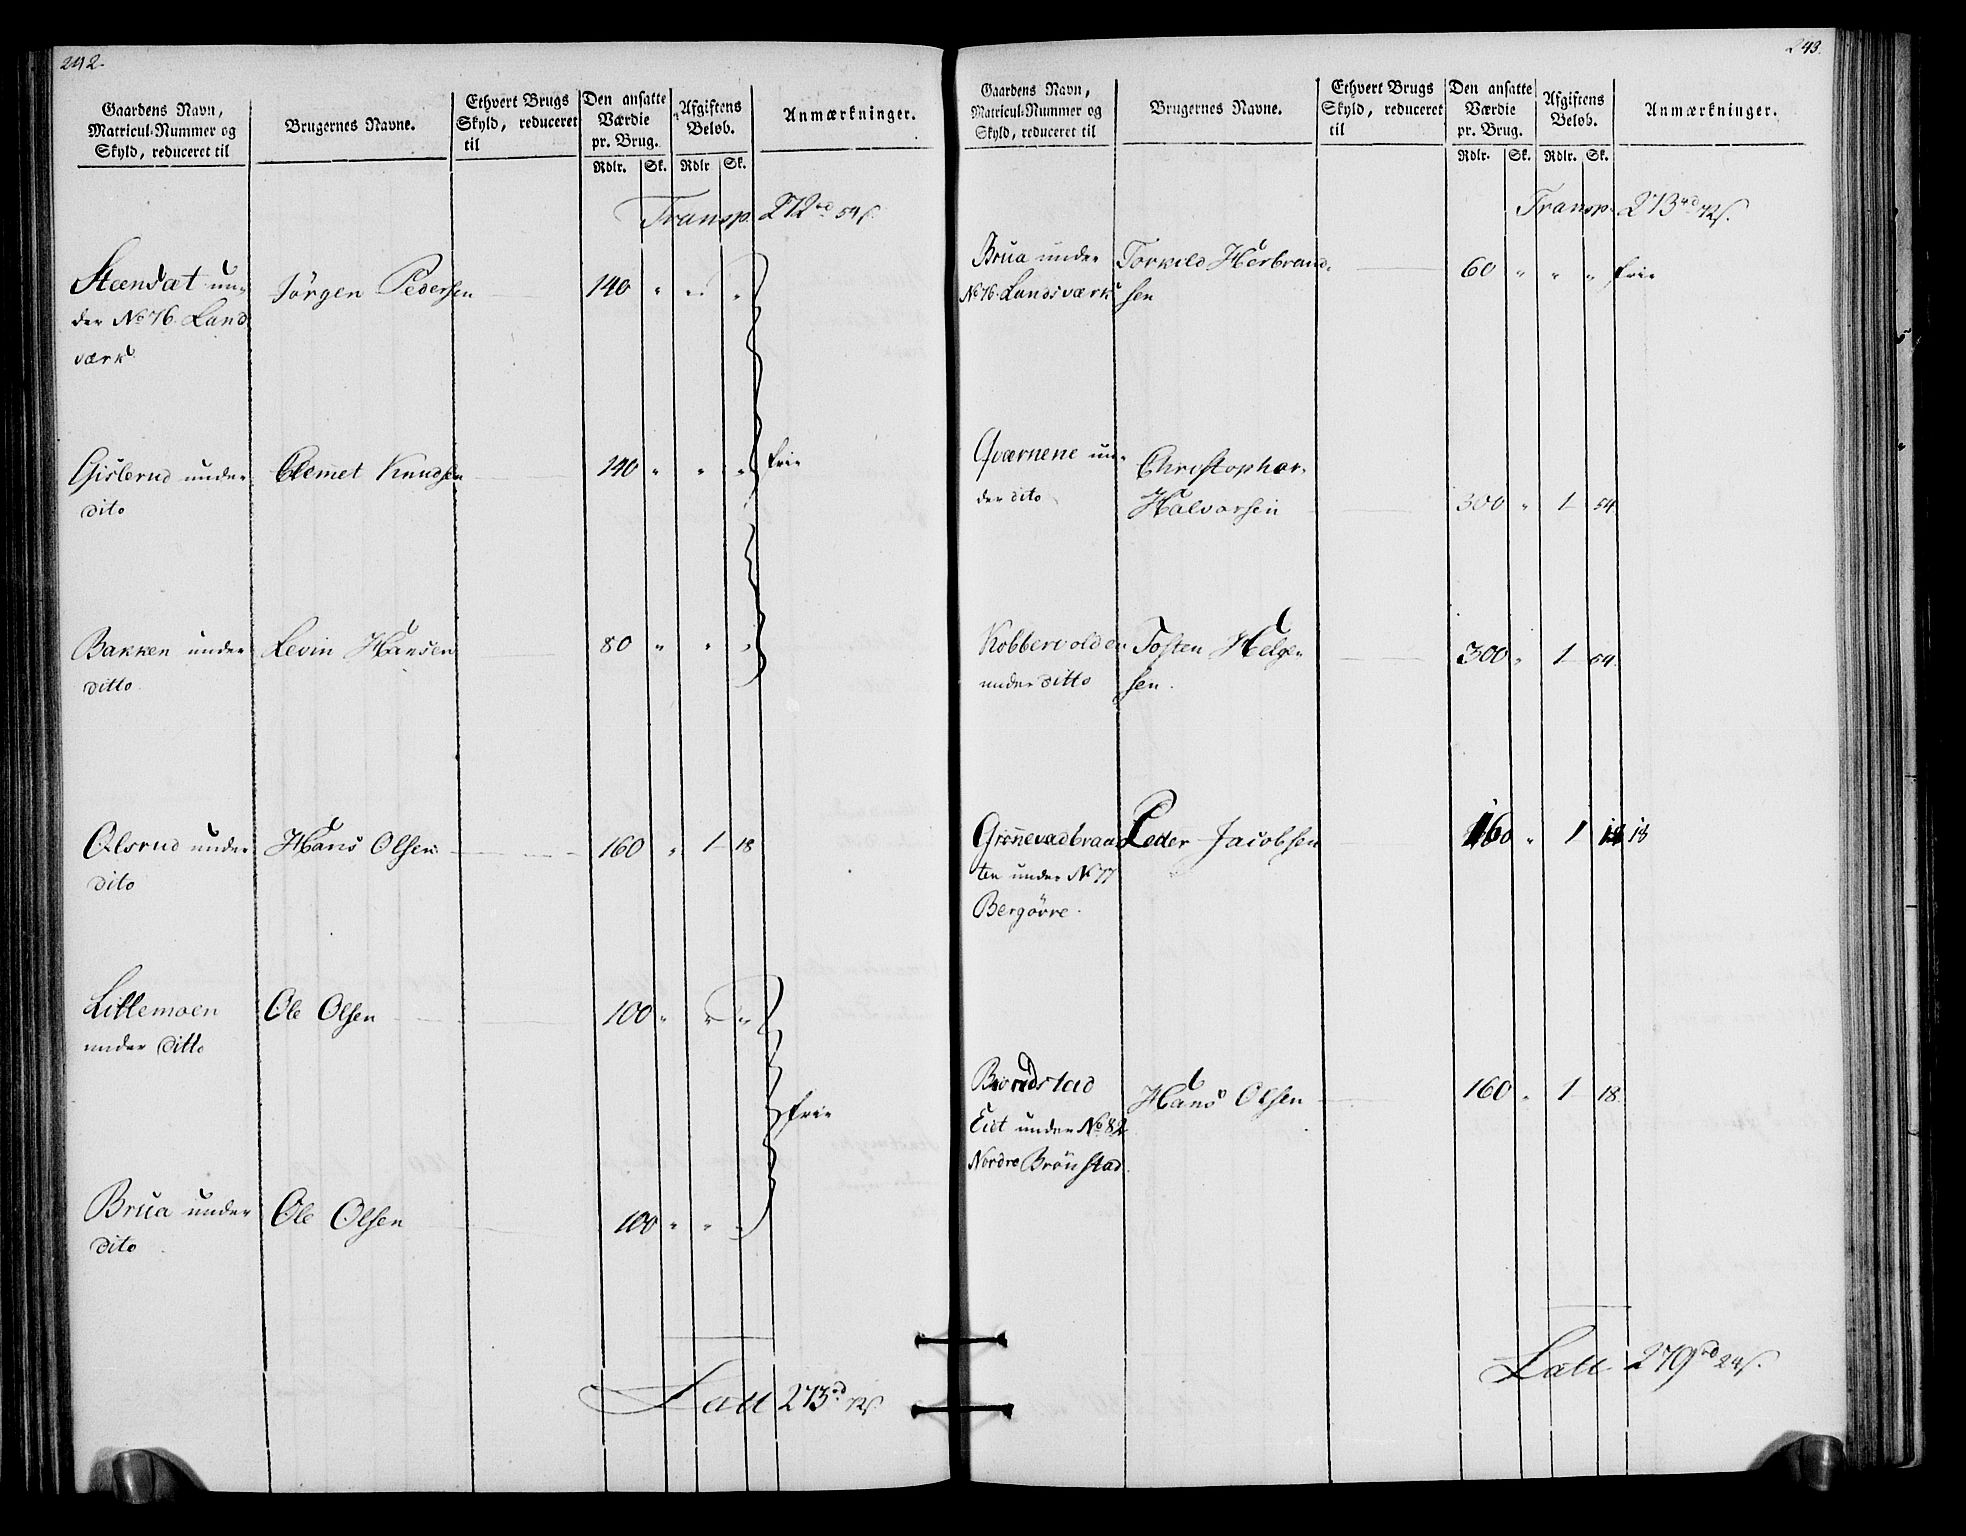 242.
Gaardens Navn,
Matricul-Nummer og
Skyld, reduceret til
Brugernes Navne.
Ethvert Brugs
Skyld, reduceret
til
Den ansatte
Værdie
pr. Brug.
Afgiftens
Beløb.
Anmærkninger.
Rdlr. Sk. Rdlr Sk.
Transp. 272 rd 54 s.
Steensæt un-
der No 76. Land
værk
Jörgen Pedersen 140 " " "
Gislerud under
dito
Clemet Knudsen 140 " " " frie
Bakken under
ditto
Levin Hansen 80 " " "
Olsrud under
dito
Hans Olsen 160 " 1 18
Lillemoen
under ditto
Ole Olsen 100 " " "
frie
Brua under
dito
Ole Olsen 100 " " "
Latt 273 rd 72 s
243.
Gaardens Navn,
Matricul-Nummer og
Skyld, reduceret til
Brugernes Navne.
Ethvert Brugs
Skyld, reduceret
til
Den ansatte
Værdie
pr. Brug.
Afgiftens
Beløb.
Anmærkninger.
Rdlr. Sk. Rdlr. Sk.
Transp. 273 rd 72 s.
Brua under
No 76. Landsværk
Torkild Herbrand-
sen
60 " " " frie
Qværnene un-
der dito
Christopher
Halvorsen 300 " 1 54
Kobbervolden
under ditto
Tosten Helge-
sen.
300 " 1 54.
Grønnevadbraa
ten under No 77
Bergövre.
Peder Jacobsen 160 " 1 18 18
Brondstad
Eiet under No 82
Nordre Brönstad.
Hans Olsen 160 " 1 18.
Latt 279 rd 24 s.